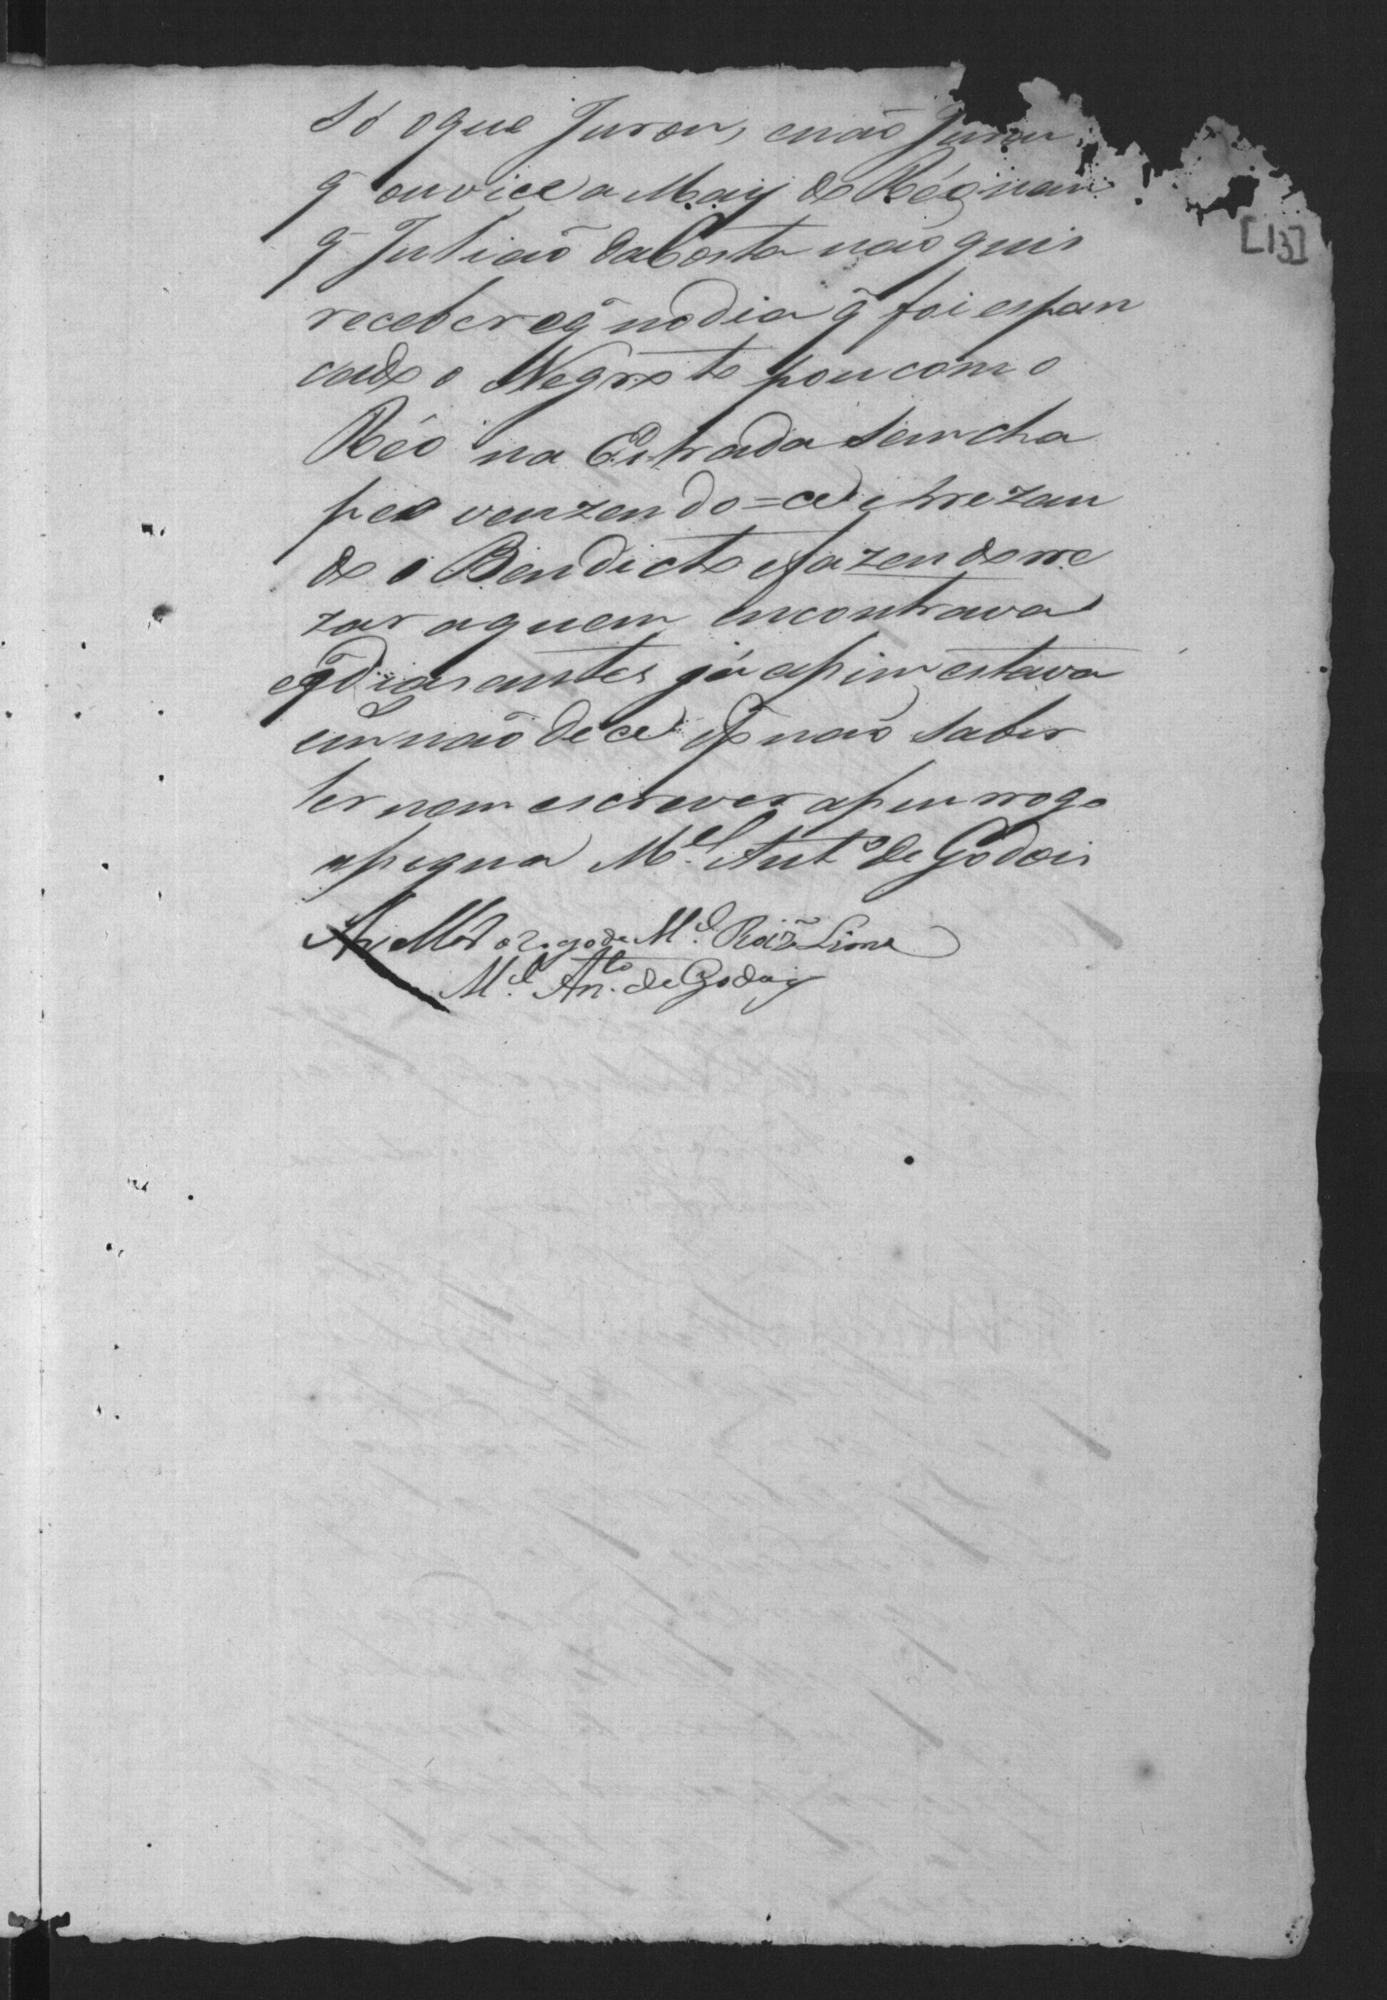 só oque Jurou, enão Jurou
q̃ ouvice a May do Réo
q̃ Julião da Costa não quis
receber eq̃ no dia q̃ foi espan
cado o Negro topou com o
Réo na Estrada sem cha
peo venzendo=ce e rrezan
do o Bendicto e fazendo rre
zar aquem encontrava
eq̃ dias antes já apim estava
em não de ce e p não saber
ler nem escrever apin rrogo
apigna M.el Ant.o de Godois
[13]
Arogo de M.el Roiz̃ Lima
M.el An.to de Godoy